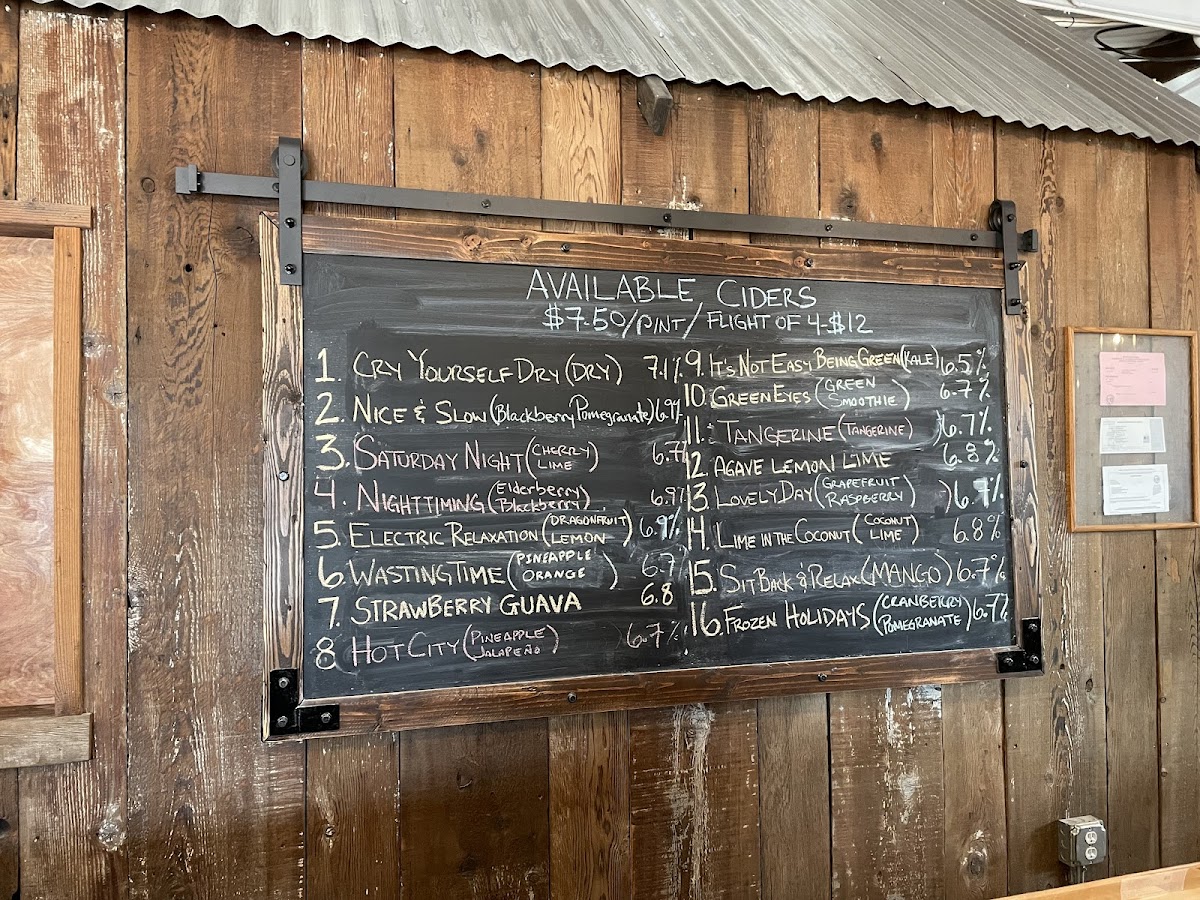 AVAILABLE CIDERS
$7.50/PINT/FLIGHT OF 4-$12
1. CRY YOURSELF DRY (DRY) 7.1%
2. NICE & SLOW (Blackberry Pomegranate) 6.9%
3. SATURDAY NIGHT (CHERRY LIME) 6.7%
4. NIGHTTIMING (Elderberry Blackberry) 6.9%
5. ELECTRIC RELAXATION (DRAGONFRUIT LEMON) 6.9%
6. WASTING TIME (PINEAPPLE ORANGE) 6.7
7. STRAWBERRY GUAVA 6.8
8 HOT CITY (PINEAPPLE JALAPEÑO) 6.7%
9. IT'S NOT EASY BEING GREEN (KALE) 6.5%
10. GREEN EYES (GREEN SMOOTHIE) 6.7%
11. TANGERINE (TANGERINE) 6.7%
12. AGAVE LEMON LIME 6.8%
13. LOVELY DAY (GRAPEFRUIT RASPBERRY) 6.7%
14. LIME IN THE COCONUT (COCONUT LIME) 6.8%
15. SIT BACK & RELAX (MANGO) 6.7%
16. FROZEN HOLIDAYS (CRANBERRY POMEGRANATE) 6.7%